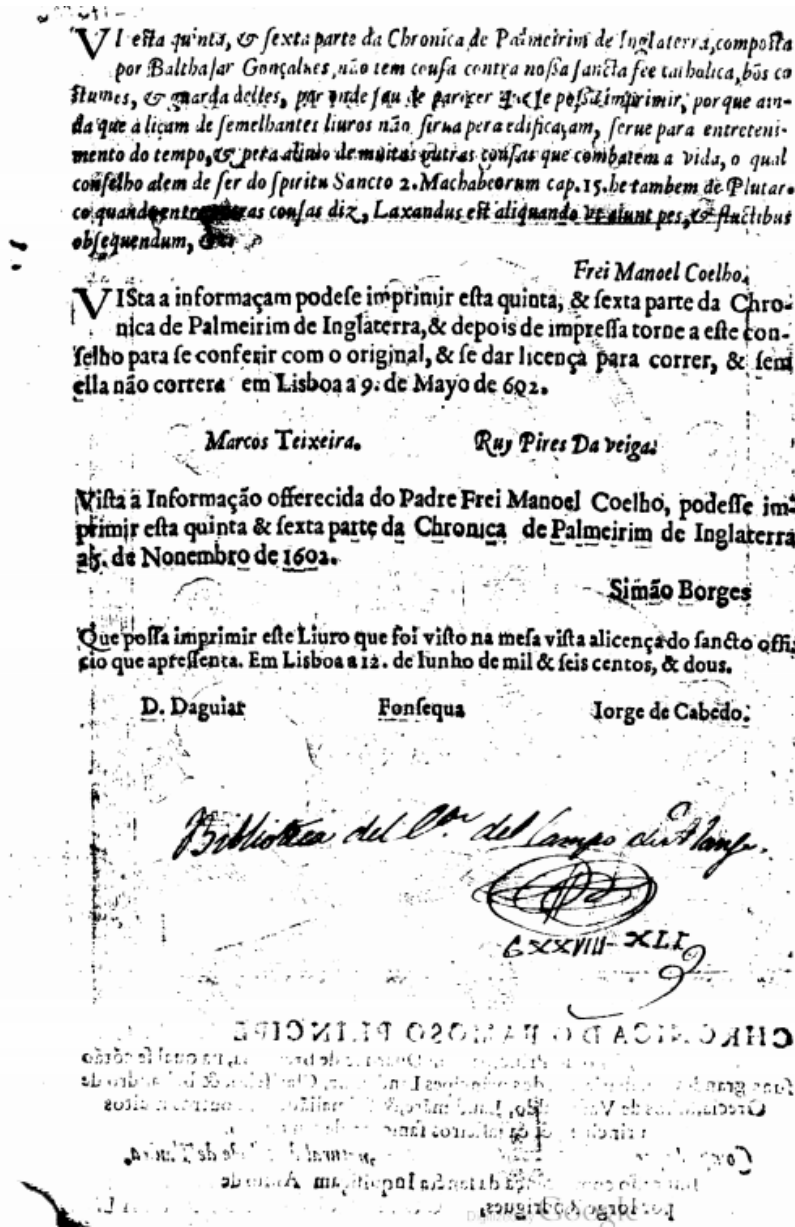 VI esta quinta, & sexta parte da Chronica de Palmeirim de Inglaterra, composta
por Balthasar Gonçalues, não tem cousa contra nossa sancta fee catholica, bõs co
stumes, & guarda delles, por onde sou de parecer que se possa imprimir, porque ain-
da que a liçam de semelhantes liuros não sirua pera edificaçam, serue para entreteni-
mento do tempo, & pera aliuio de muitas outras cousas que combatem a vida, o qual
conselho alem de ser do spiritu Sancto 2. Machabeorum cap. 15. he tambem de Plutar-
co quando entre outras cousas diz, Laxandus est aliquando vt aiunt pes, & fluctibus
obsequendum,
Frei Manoel Coelho.
VISta a informaçam podese imprimir esta quinta, & sexta parte da Chro-
nica de Palmeirim de Inglaterra, & depois de impressa torne a este con-
selho para se conferir com o original, & se dar licença para correr, & sem
ella não correra em Lisboa a 9. de Mayo de 602.
Marcos Teixeira. Ruy Pires Da veiga.
Vista a Informação offerecida do Padre Frei Manoel Coelho, podesse im-
primir esta quinta & sexta parte da Chronica de Palmeirim de Inglaterra
de Nonembro de 1602.
Simão Borges
Que possa imprimir este Liuro que foi visto na mesa vista alicença do sancto offi-
cio que apressenta. Em Lisboa a 12. de Iunho de mil & seis centos, & dous.
D. Daguiar Fonsequa Iorge de Cabedo.
Biblioteca del del Campo de Alange.